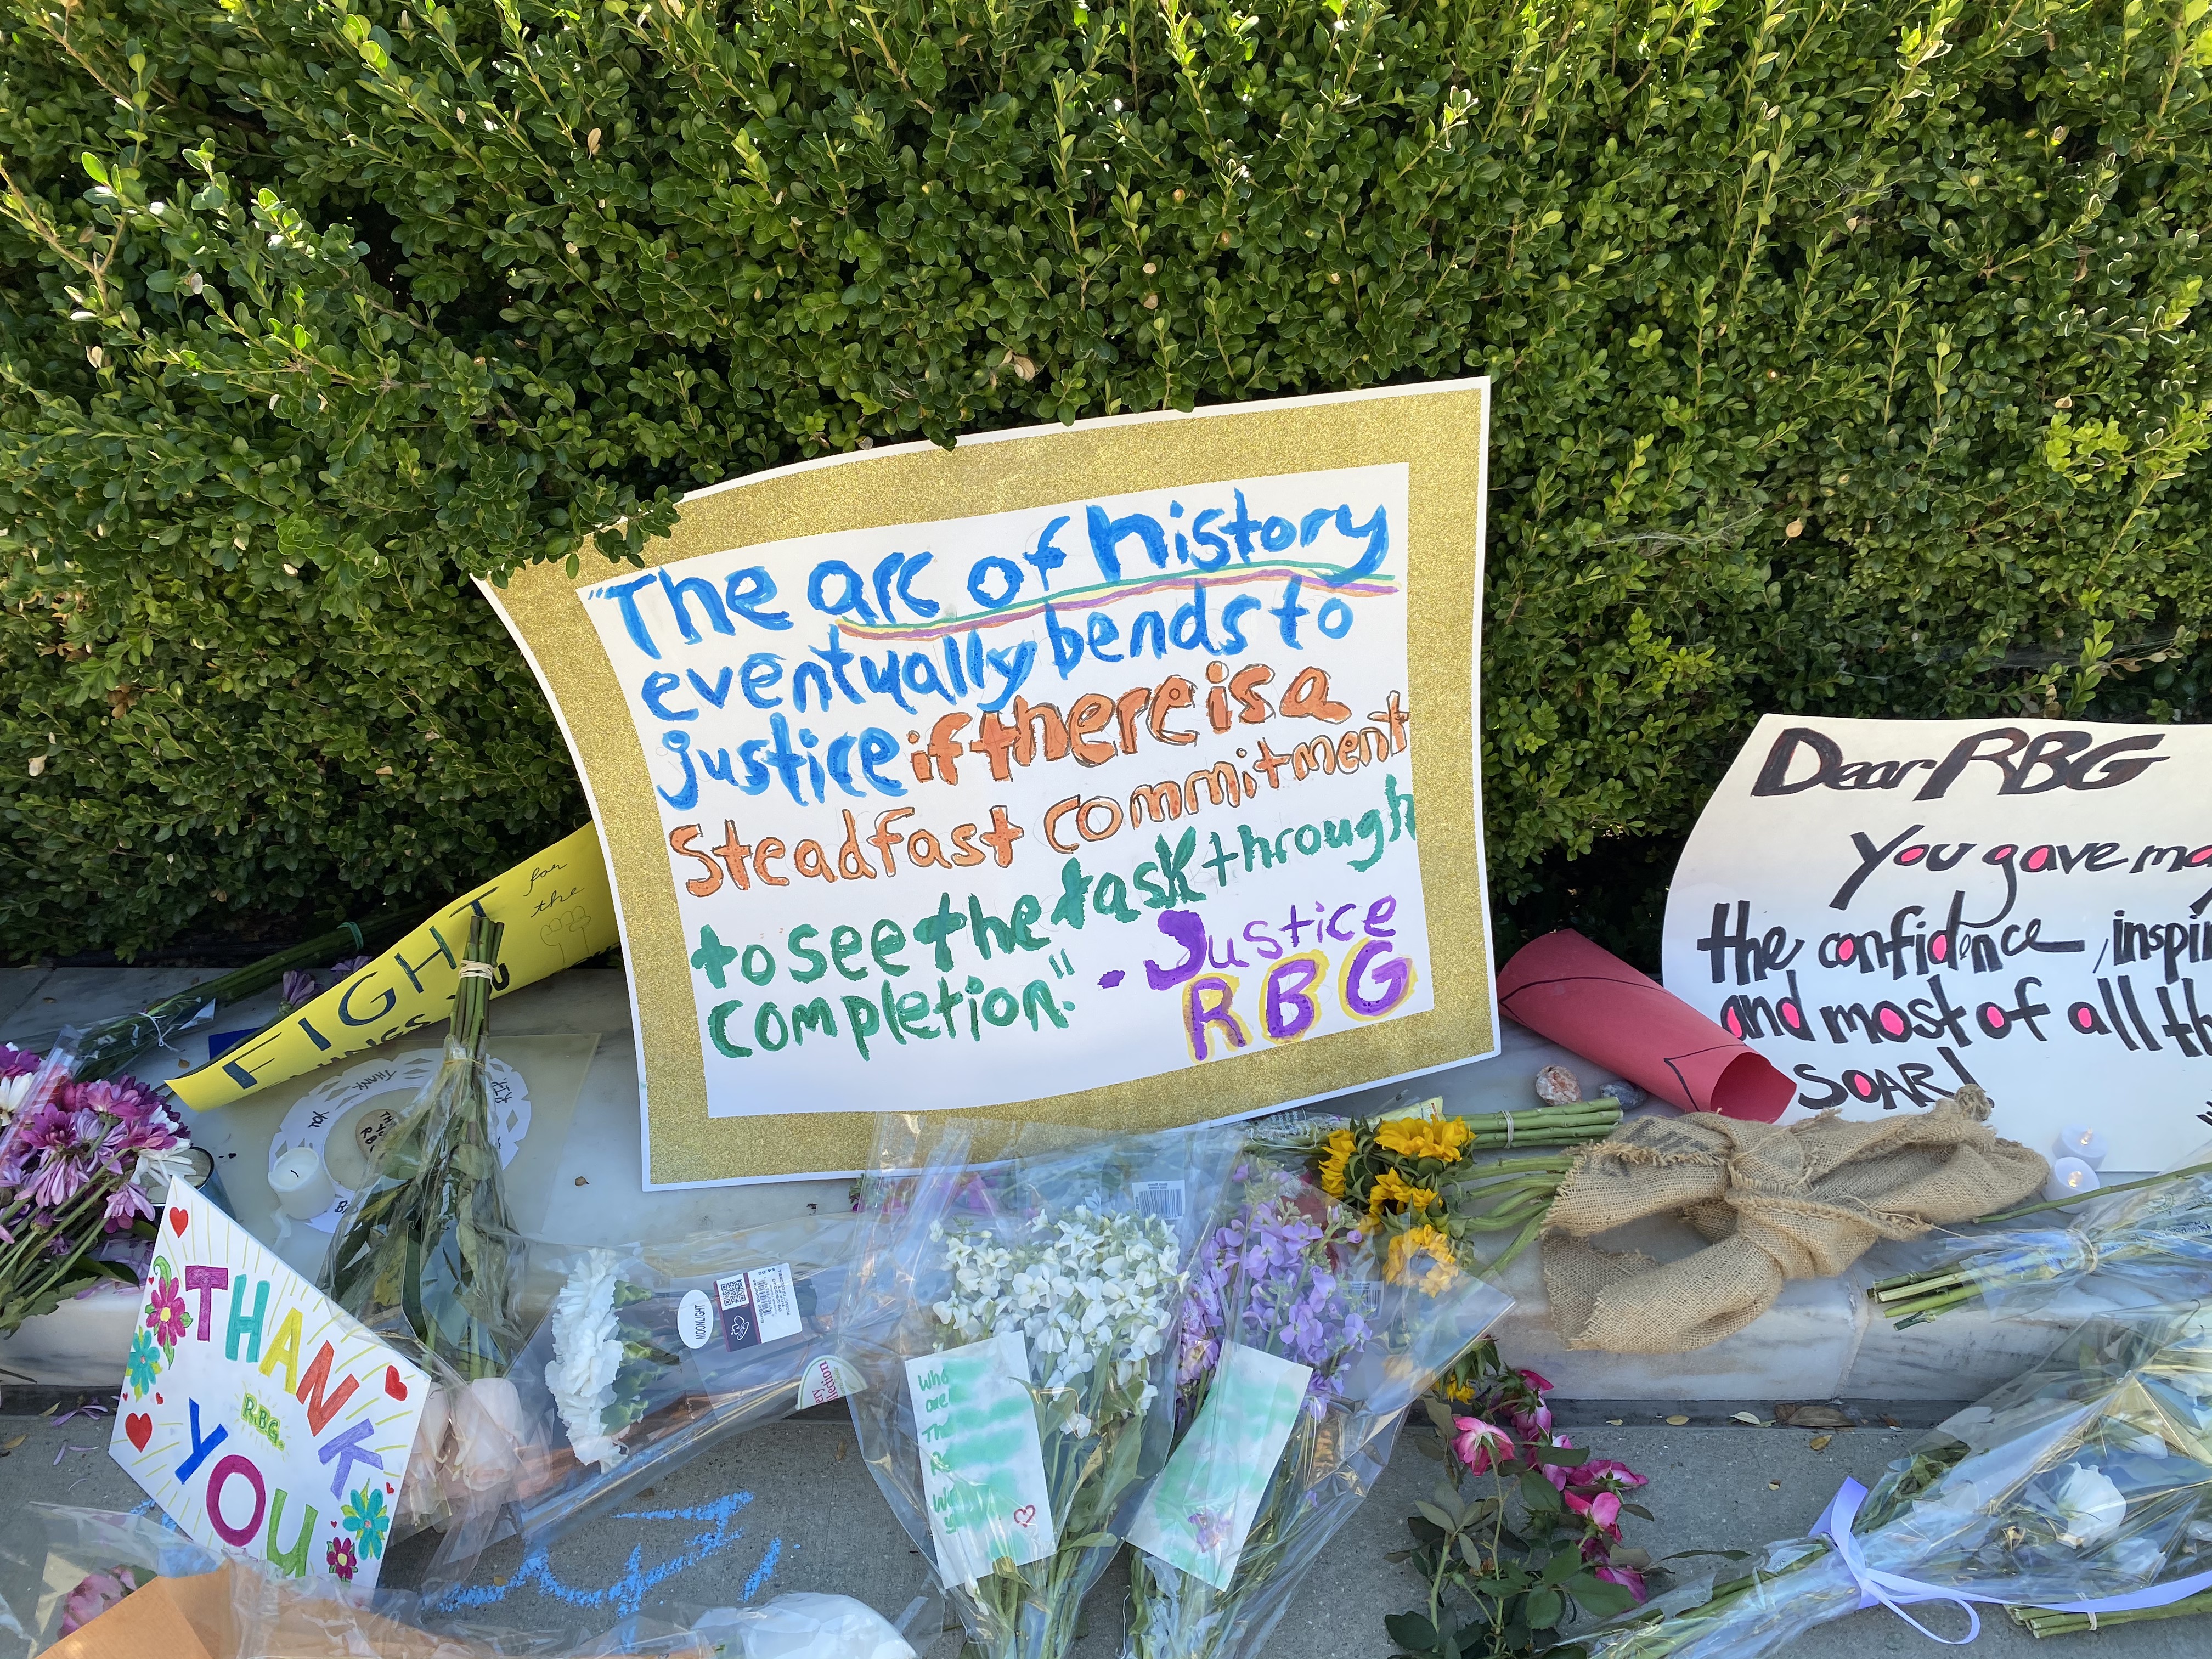 "The arc of history
eventually bends to
justice if there is a
Steadfast commitment
to see the task through
completion." - Justice
RBG
Dear RBG
You gave
the confidence,
and most of all
SOAR!
FIGHT for
the
THANK
R.B.G.
YOU
THANK
YOU
R.I.P.
MOONLIGHT
Who
are